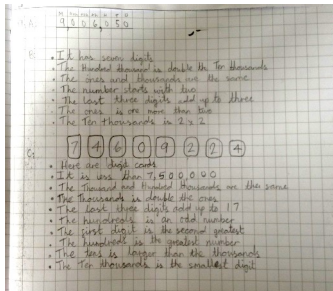 A.
M HTh TTh Th H T O
9,006,050
B.
• It has seven digits
• The Hundred thousand is double the Ten thousands
• The ones and thousands are the same
• The number starts with two
• The last three digits add up to three
• The ones is one more than two
• The Ten thousands is 2 x 2
C.
7 4 6 0 9 2 2 4
• Here are digit cards
• It is less than 7,500,000
• The Thousand and Hundred Thousands are the same
• The Thousands is double the ones
• The last three digits add up to 17
• The hundreds is an odd number
• The first digit is the second greatest
• The hundreds is the greatest number
• The tens is larger than the thousands
• The Ten thousands is the smallest digit